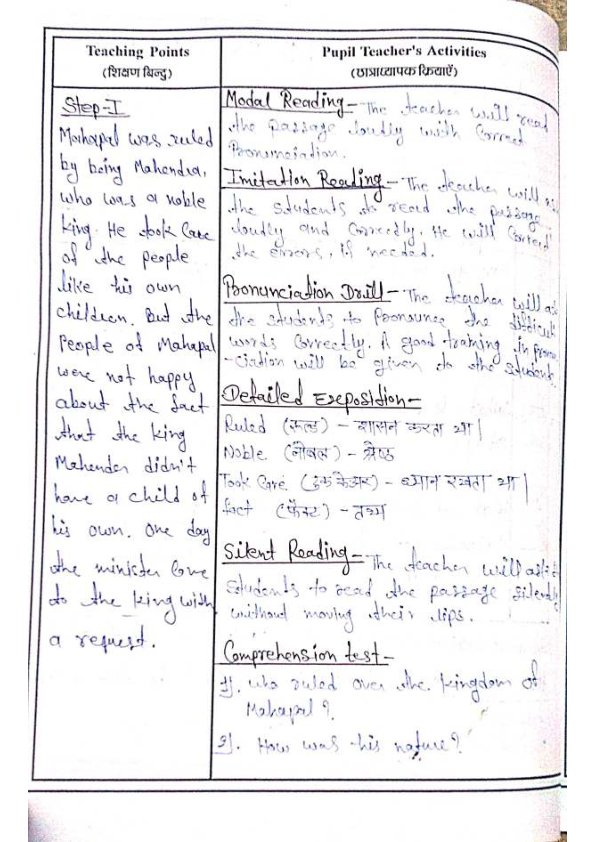 Teaching Points
(शिक्षण बिन्दु)
Step-I
Mahapal was ruled
by being Mahendra,
who was a noble
king. He took care
of the people
like his own
children. But the
People of Mahapal
were not happy
about the fact
that the king
Mahender didn't
have a child of
his own. One day
the minister come
to the king with
a request.
Pupil Teacher's Activities
(छात्राध्यापक क्रियाएँ)
Modal Reading - The teacher will read
the passage loudly with correct
Pronunciation.
Imitation Reading - The teacher will as
the students to read the passage
loudly and correctly. He will correct
the errors, if needed.
Pronunciation Drill - The teacher will as
the students to pronounce the difficult
words correctly. A good training in pronu
-ciation will be given to the students.
Detailed Exeposition -
Ruled (रूल्ड) - शासन करता था।
Noble (नोबल) - श्रेष्ठ
Took Care (टुक केअर) - ध्यान रखता था।
fact (फैक्ट) - तथ्य
Silent Reading - The teacher will
Students to read the passage silently
without moving their lips.
Comprehension test -
1). who ruled over the kingdom of
Mahapal?
2). How was his nature?